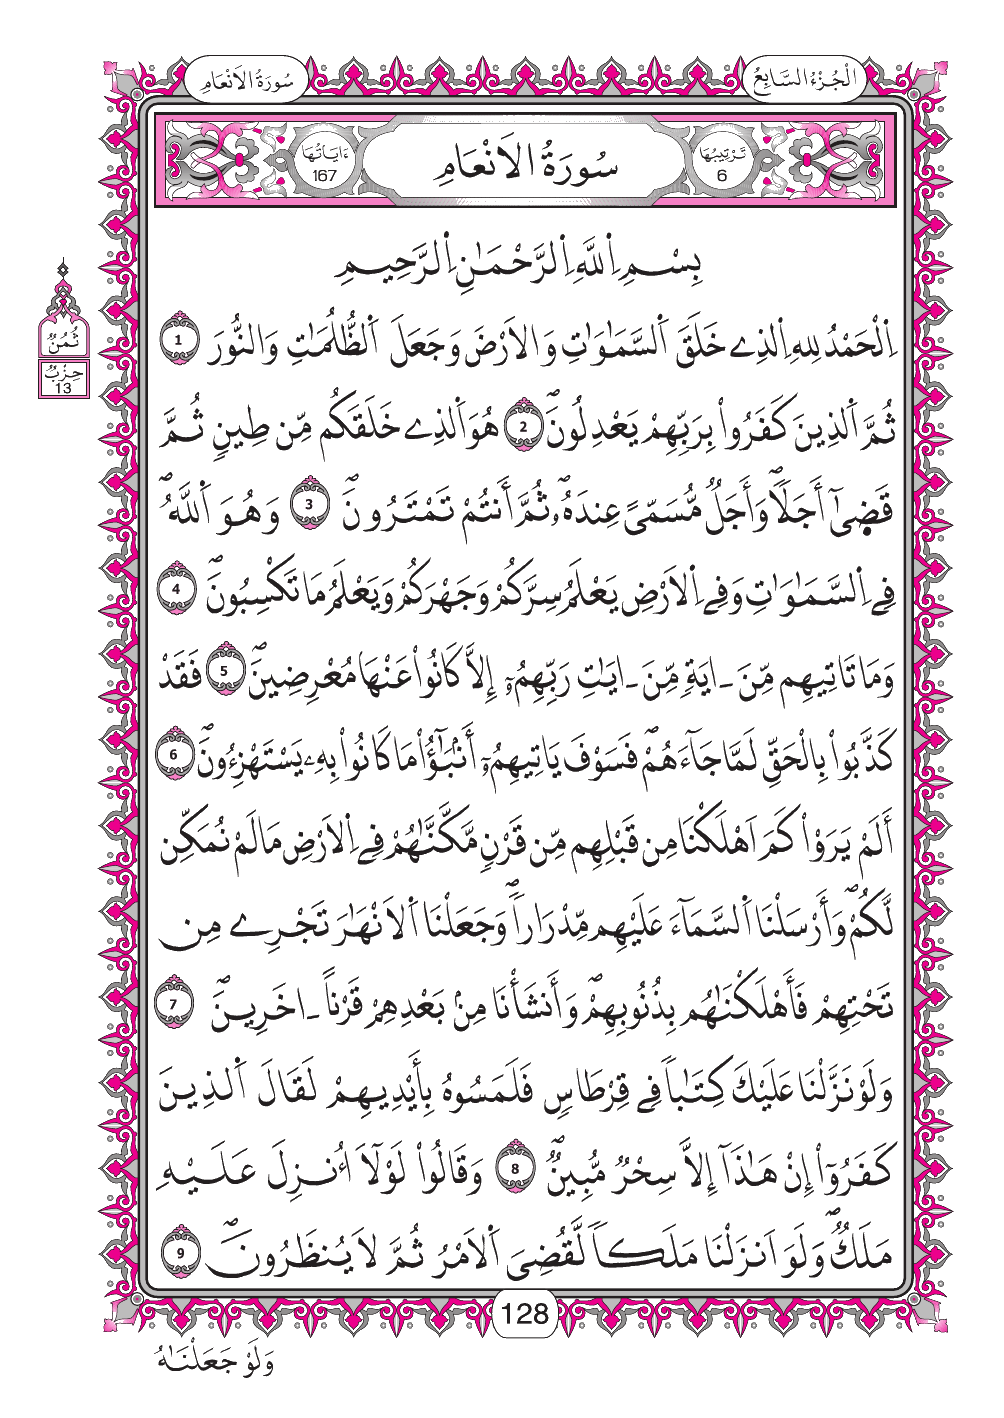 الْجُزْءُ السَّابِعُ
سُورَةُ الَانْعَامِ
تَرْتِيبُهَا
6
سُورَةُ الَانْعَامِ
ءَايَاتُهَا
167
بِسْمِ اِ۬للَّهِ اِ۬لرَّحْمَٰنِ اِ۬لرَّحِيمِ
اِ۬لْحَمْدُ لِلهِ اِ۬لذِے خَلَقَ اَ۬لسَّمَٰوَٰتِ وَالَارْضَ وَجَعَلَ اَ۬لظُّلُمَٰتِ وَالنُّورَ 1
ثُمَّ اَ۬لذِينَ كَفَرُواْ بِرَبِّهِمْ يَعْدِلُونَۖ 2 هُوَ اَ۬لذِے خَلَقَكُم مِّن طِينٖ ثُمَّ
قَض۪ىٰٓ أَجَلاٗۖ وَأَجَلٞ مُّسَمّيً عِندَهُۥۖ ثُمَّ أَنتُمْ تَمْتَرُونَۖ 3 وَهُوَ اَ۬للَّهُۖ
فِے اِ۬لسَّمَٰوَٰتِ وَفِے اِ۬لَارْضِ يَعْلَمُ سِرَّكُمْ وَجَهْرَكُمْ وَيَعْلَمُ مَا تَكْسِبُونَۖ 4
وَمَا تَاتِيهِم مِّنَ ـ ايَةٖ مِّنَ ـ ايَٰتِ رَبِّهِمُۥٓ إِلَّا كَانُواْ عَنْهَا مُعْرِضِينَۖ 5 فَقَدْ
كَذَّبُواْ بِالْحَقِّ لَمَّا جَآءَهُمْۖ فَسَوْفَ يَاتِيهِمُۥٓ أَنۢبَٰٓؤُاْ مَا كَانُواْ بِهِۦ يَسْتَهْزِءُونَۖ 6
أَلَمْ يَرَوْاْ كَمَ اَهْلَكْنَا مِن قَبْلِهِم مِّن قَرْنٖ مَّكَّنَّٰهُمْ فِے اِ۬لَارْضِ مَا لَمْ نُمَكِّن
لَّكُمْۖ وَأَرْسَلْنَا اَ۬لسَّمَآءَ عَلَيْهِم مِّدْرَاراٗۖ وَجَعَلْنَا اَ۬لَانْهَٰرَ تَجْرِے مِن
تَحْتِهِمْ فَأَهْلَكْنَٰهُم بِذُنُوبِهِمْۖ وَأَنشَأْنَا مِنۢ بَعْدِهِمْ قَرْناً ـ اخَرِينَۖ 7
وَلَوْ نَزَّلْنَا عَلَيْكَ كِتَٰباٗ فِے قِرْطَاسٖ فَلَمَسُوهُ بِأَيْدِيهِمْ لَقَالَ اَ۬لذِينَ
كَفَرُوٓاْ إِنْ هَٰذَآ إِلَّا سِحْرٞ مُّبِينٞۖ 8 وَقَالُواْ لَوْلَآ أُنزِلَ عَلَيْهِ
مَلَكٞۖ وَلَوَ اَنزَلْنَا مَلَكاٗ لَّقُضِيَ اَ۬لَامْرُ ثُمَّ لَا يُنظَرُونَۖ 9
ثُمُنٌ
حِزْبٌ
13
128
وَلَوْ جَعَلْنَٰهُ